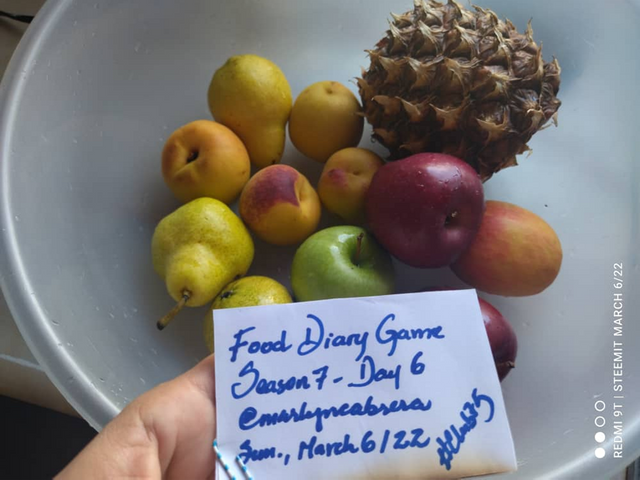 Food Diary Game
Season 7 - Day 6
@marlyncabrera
Sun., March 6/22
REDMI 9T | STEEMIT MARCH 6/22